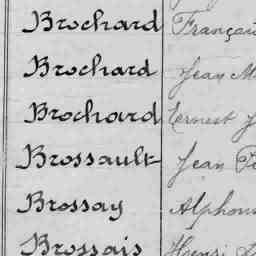 Brochard Françai
Brochard Jean M
Brochard Ernest J
Brossault Jean
Brossay Alphons
Brossais Henri